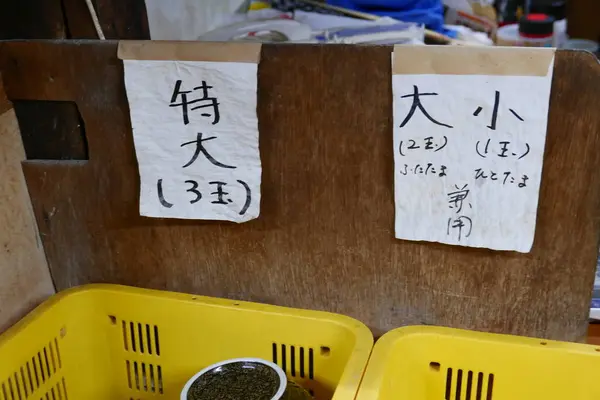 特
大
(3玉)
大 小
(2玉) (1玉)
ふたたま ひとたま
兼
用